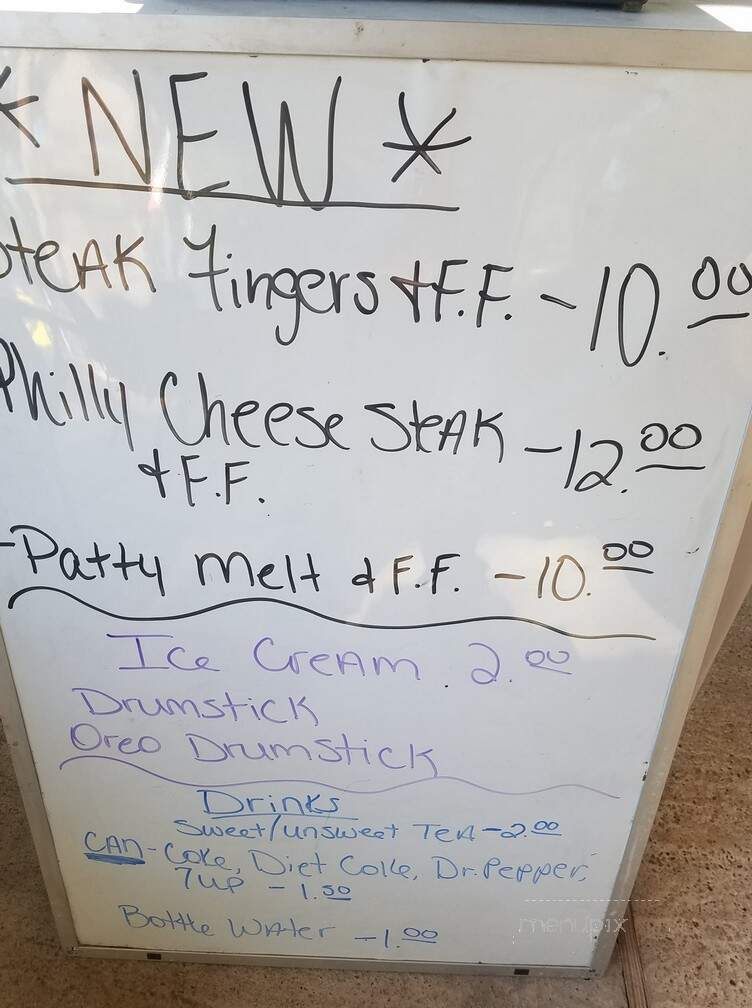 * NEW *
Steak Fingers & F.F. - 10.00
Philly Cheese Steak - 12.00
& F.F.
- Patty Melt & F.F. - 10.00
Ice Cream 2.00
Drumstick
Oreo Drumstick
Drinks
Sweet/unsweet Tea - 2.00
CAN - Coke, Diet Coke, Dr. Pepper,
7up - 1.50
Bottle Water - 1.00
menupix